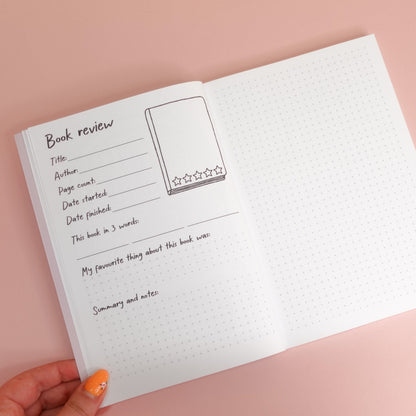 Book review
Title:
Author:
Page count:
Date started:
Date finished:
This book in 3 words:
My favourite thing about this book was:
Summary and notes: